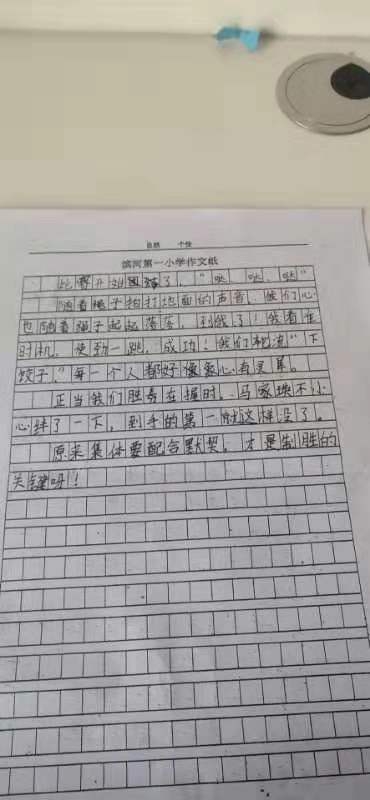 自然 个性
滨河第一小学作文纸
比赛开始了，“哒、哒、哒”
随着绳子拍打地面的声音，我们心
也随着绳子起起落落，到我了！我看准
时机，使劲一跳，成功！我们轮流“下
饺子，”每一个人都好像象心有灵犀。
正当我们胜券在握时，马家埃不小
心绊了一下，到手的第一就这样没了。
原来集体要配合默契，才是制胜的
关键呀！